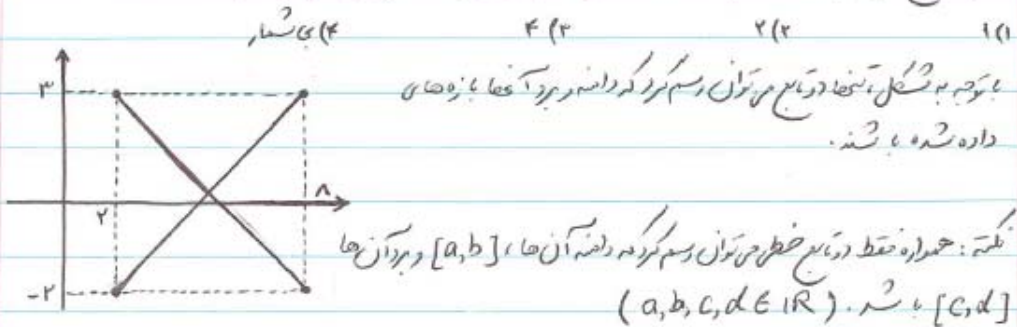 ۱) ۱ ۲) ۲ ۳) ۴ ۴) بی شمار
با توجه به شکل، تنها دو تابع می توان رسم کرد که دامنه و برد آنها بازه های
داده شده باشند.
۳
۲
۸
-۲
نکته: همواره فقط دو تابع خطی می توان رسم کرد که دامنه آن ها، [a,b] و برد آن ها
[c,d] باشد. (a,b,c,d ∈ IR)